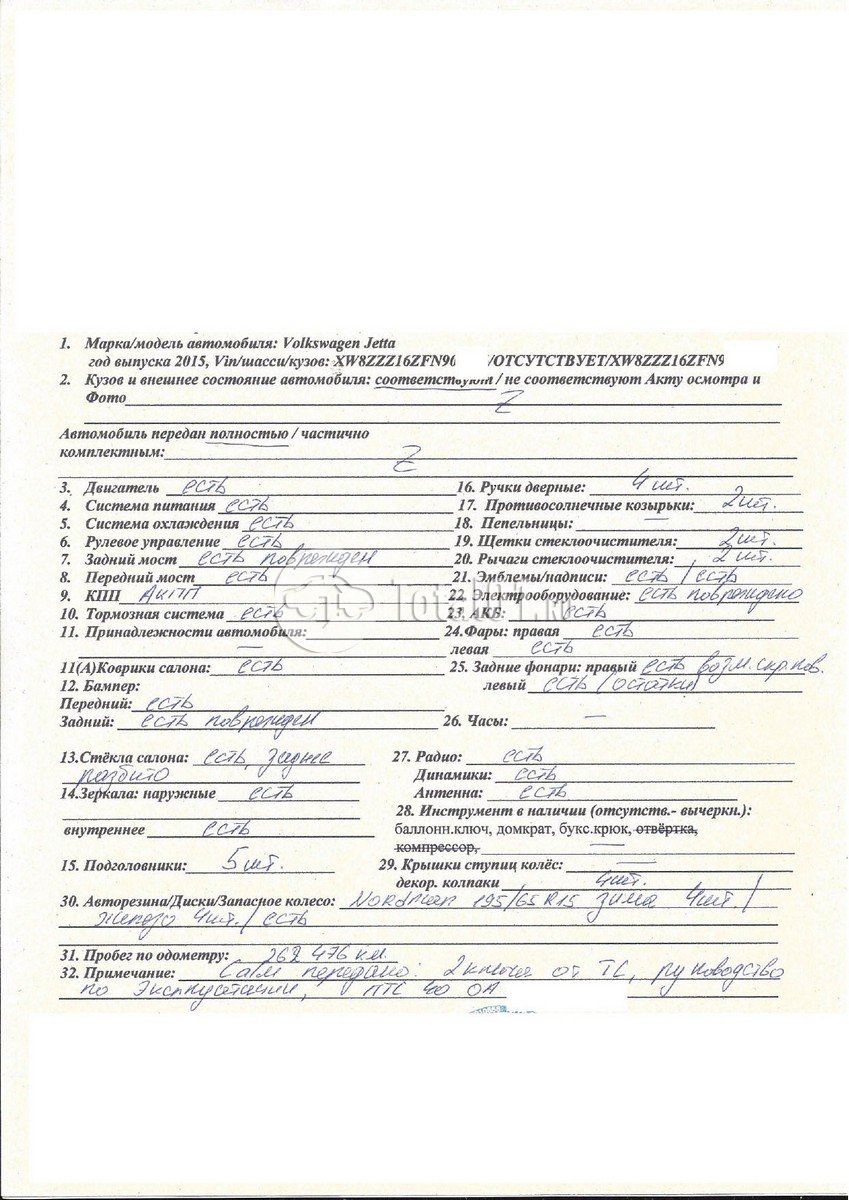 1. Марка/модель автомобиля: Volkswagen Jetta
год выпуска 2015, Vin/шасси/кузов: XW8ZZZ16ZFN90 /ОТСУТСТВУЕТ/XW8ZZZ16ZFN9
2. Кузов и внешнее состояние автомобиля: соответствуют / не соответствуют Акту осмотра и
Фото Z
Автомобиль передан полностью / частично
комплектным: Z
3. Двигатель есть
16. Ручки дверные: 4 шт.
4. Система питания есть
17. Противосолнечные козырьки: 2 шт.
5. Система охлаждения есть
18. Пепельницы: —
6. Рулевое управление есть
19. Щетки стеклоочистителя: 2 шт.
7. Задний мост есть поврежден
20. Рычаги стеклоочистителя: 2 шт.
8. Передний мост есть
21. Эмблемы/надписи: есть / есть
9. КПП АКПП
22. Электрооборудование: есть повреждено
10. Тормозная система есть
23. АКБ: есть
11. Принадлежности автомобиля: —
24.Фары: правая есть
левая есть
11(А)Коврики салона: есть
25. Задние фонари: правый есть возм. скр. пов.
левый есть (остатки)
12. Бампер:
Передний: есть
Задний: есть поврежден
26. Часы: —
13.Стёкла салона: есть, заднее
разбито
27. Радио: есть
Динамики: есть
14.Зеркала: наружные есть
Антенна: есть
28. Инструмент в наличии (отсутств.- вычеркн.):
внутреннее есть
баллонн.ключ, домкрат, букс.крюк, отвёртка,
компрессор, —
15. Подголовники: 5 шт.
29. Крышки ступиц колёс: —
декор. колпаки 4шт.
30. Авторезина/Диски/Запасное колесо: Nordman 195/65 R15 зима 4шт. /
железо 4шт. / есть
31. Пробег по одометру: 262 476 км.
32. Примечание: передано: 2 ключа от ТС, руководство
по эксплуатации, ПТС ОА
Total01.ru